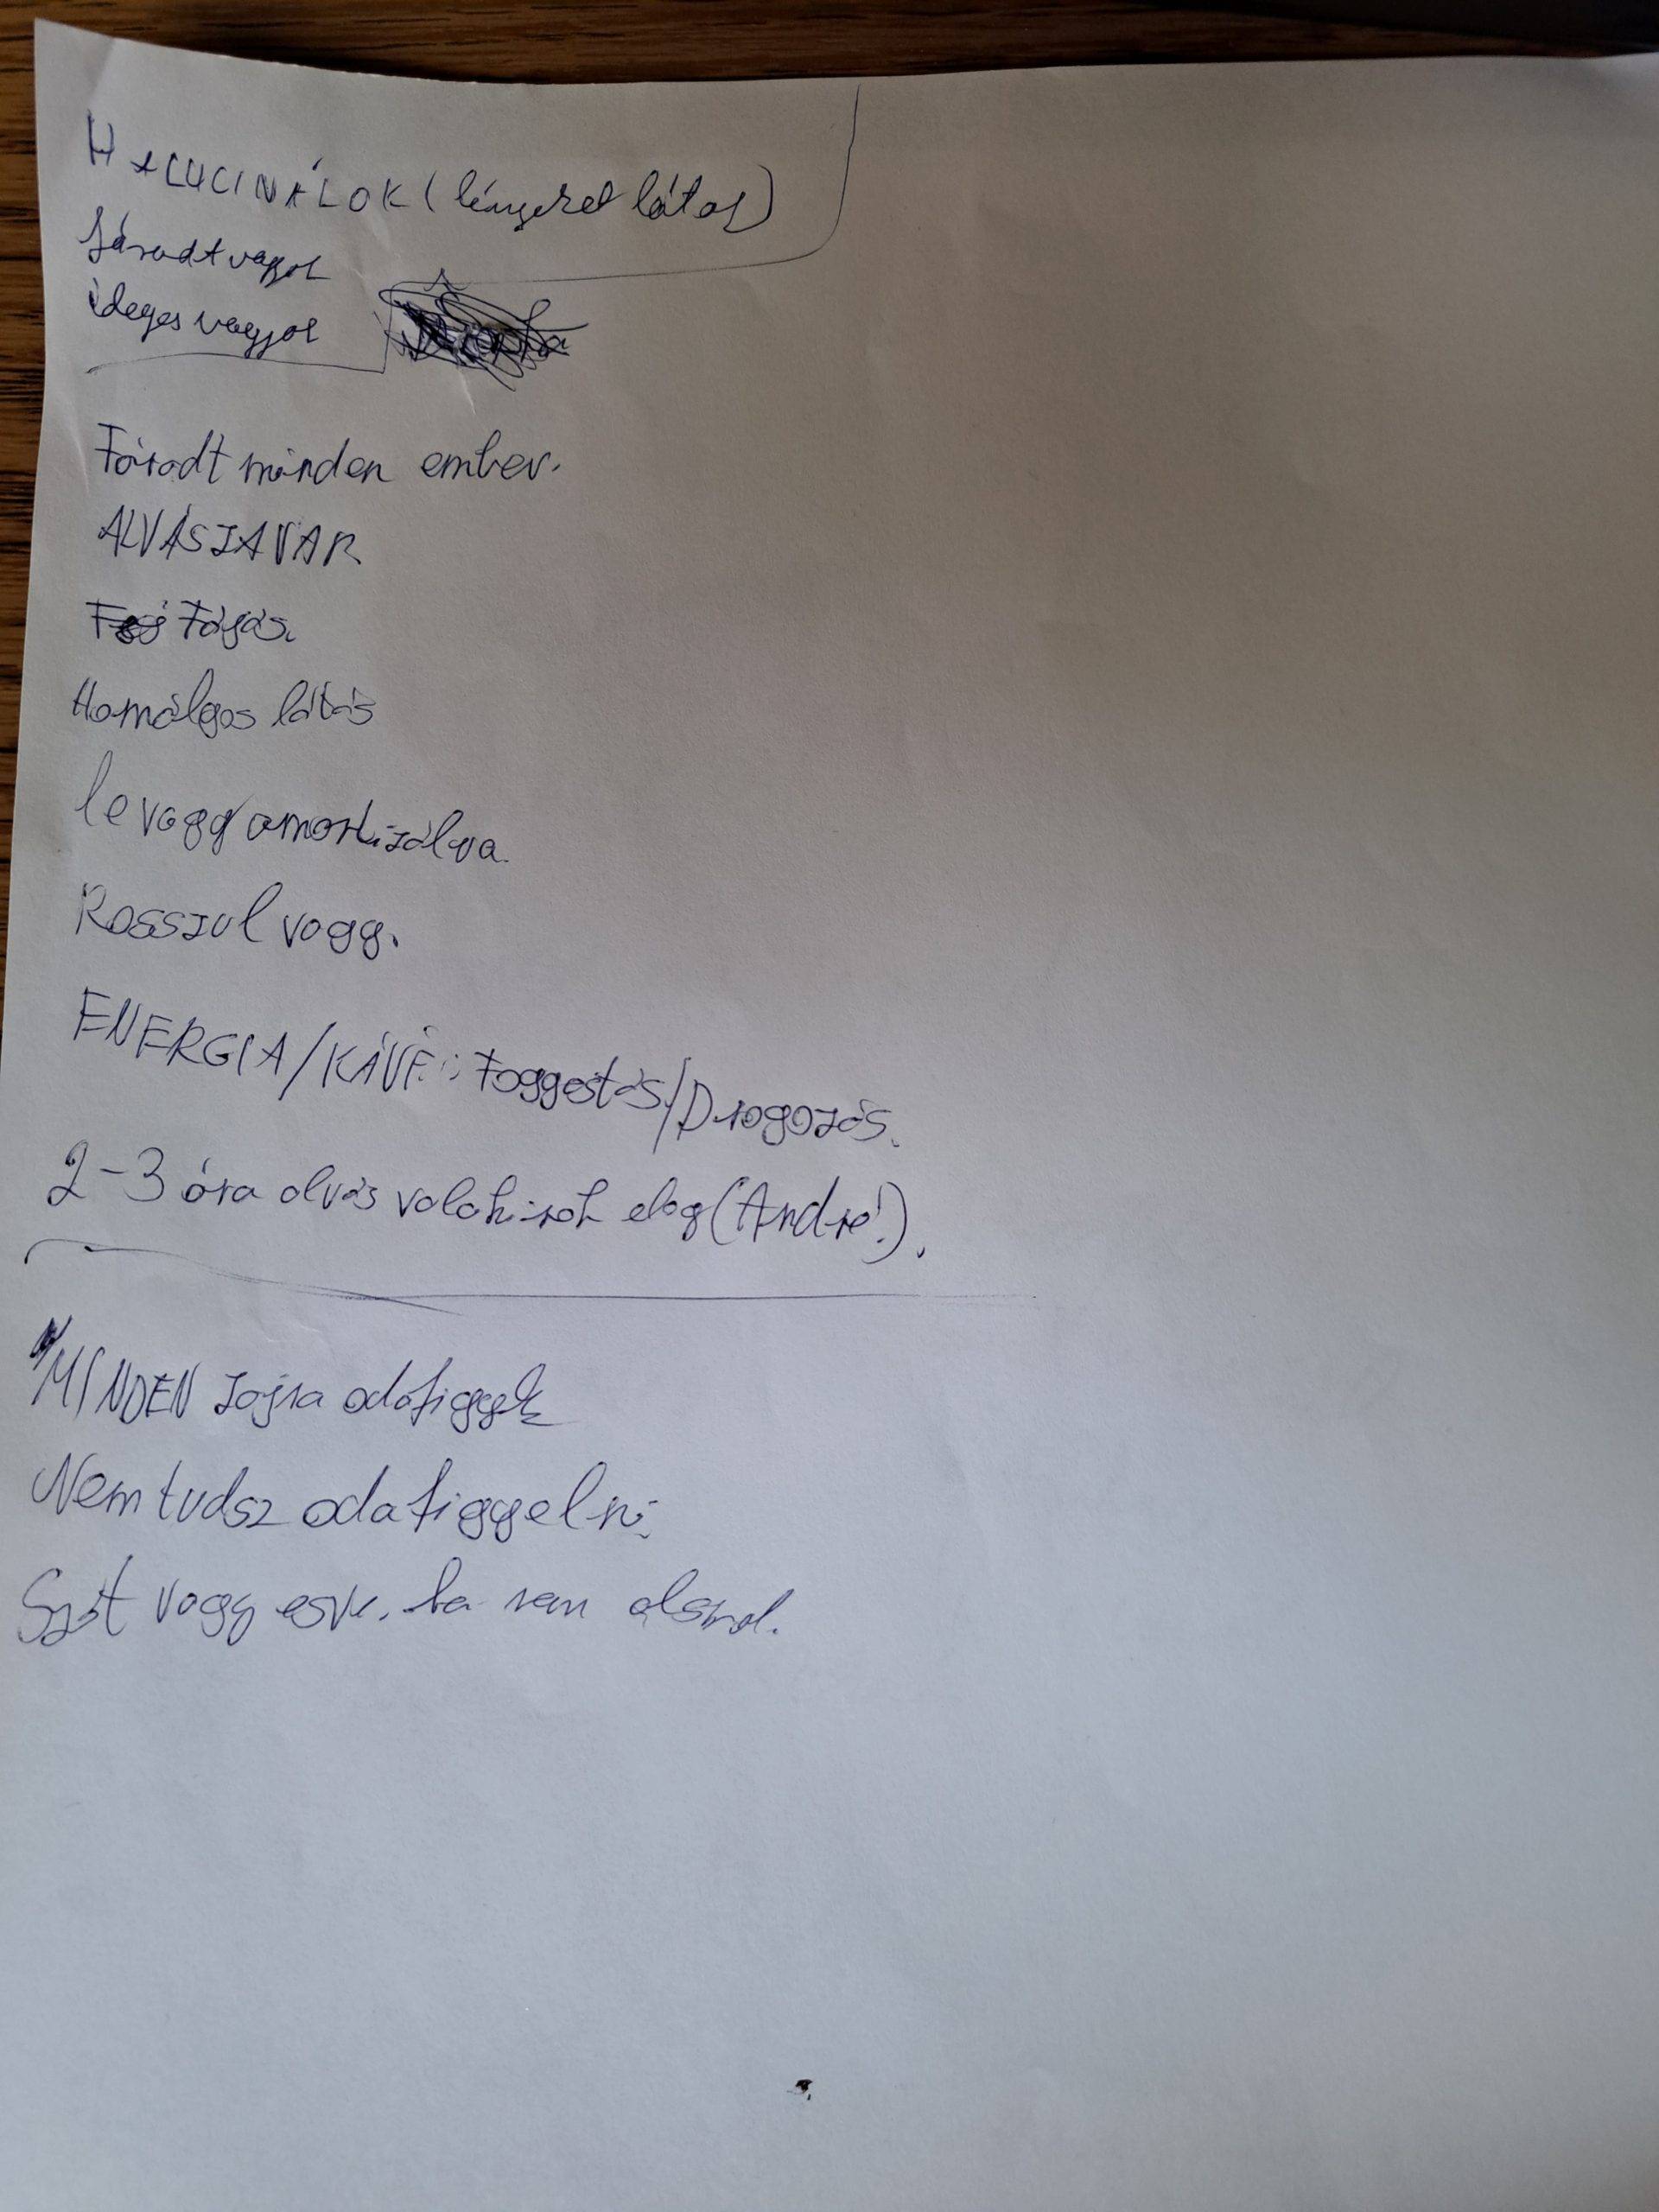 HALUCINÁLOK (lényeket látok)
fáradt vagyok
ideges vagyok
Fáradt minden ember.
ALVÁSZAVAR
Fejfájás.
Homályos látás
le vagy amortizálva.
Rosszul vagy.
ENERGIA/KÁVÉ: Foggestás/Drogozás.
2-3 óra alvás valakinek elég (André!).
MINDEN zajra odafigyek
Nem tudsz odafiggelni.
Szét vagy esve, ha nem alszol.